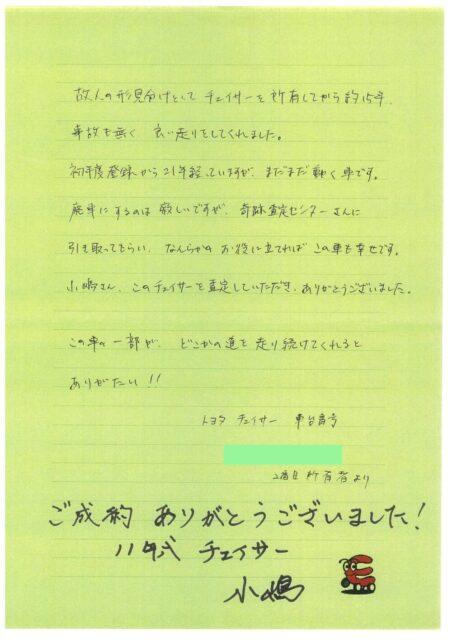 故人の形見分けとして チェイサーを所有してから約15年、
事故も無く 良い走りをしてくれました。
初年度登録から21年経っていますが、まだまだ動く車です。
廃車にするのは寂しいですが、奇跡査定センターさんに
引き取ってもらい、なんらかのお役に立てれば この車も幸せです。
小嶋さん、このチェイサーを査定していただき、ありがとうございました。
この車の一部が、どこかの道を走り続けてくれると
ありがたい!!
トヨタ チェイサー 車台番号
2番目所有者より
ご成約 ありがとうございました!
11年式 チェイサー
小嶋